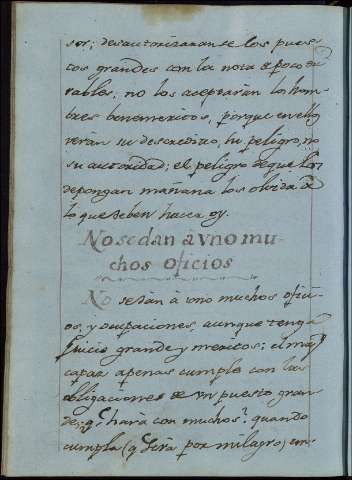 sor; desautorizaranse los pues-
tos grandes con la nota de poco du
rables; no los aceptarán los hom-
bres benemeritos, porque en ello
verán su descredito, su peligro, no
su autoridad; el peligro de que los
depongan mañana los olvida de
lo que deben hacer oy.
No se dan à vno mu-
chos oficios
No se dan à vno muchos ofici-
os, y ocupaciones, aunque tenga
juicio grande y meritos; el mas
capaz apenas cumple con las
obligaciones de vn puesto gran-
de; q. hará con muchos? quando
cumpla (q será por milagro) con